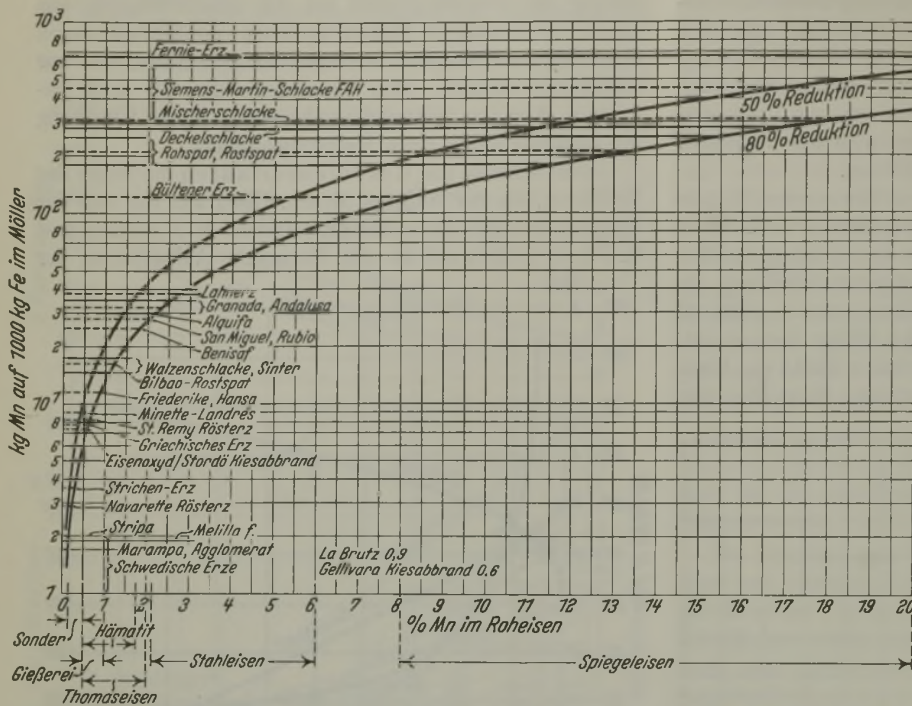 10³
8
6
5
4
3
2
10²
8
6
5
4
3
2
10¹
8
6
5
4
3
2
1
kg Mn auf 1000 kg Fe im Möller
Fernie-Erz
Siemens-Martin-Schlacke FAH
Mischerschlacke
Deckelschlacke
Rohspat, Rostspat
Bültener Erz
50 % Reduktion
80 % Reduktion
Lahnerz
Granada, Andalusa
Alquifa
San Miguel, Rubio
Benisaf
Walzenschlacke, Sinter
Bilbao-Rostspat
Friederike, Hansa
Minette-Landres
St. Remy Rösterz
Griechisches Erz
Eisenoxyd/Stordö Kiesabbrand
Strichen-Erz
Navarette Rösterz
Stripa
Melilla f.
Marampa, Agglomerat
Schwedische Erze
La Brutz 0,9
Gellivara Kiesabbrand 0.6
0 1 2 3 4 5 6 7 8 9 10 11 12 13 14 15 16 17 18 19 20
% Mn im Roheisen
Sonder
Hämatit
Gießerei
Stahleisen
Spiegeleisen
Thomaseisen